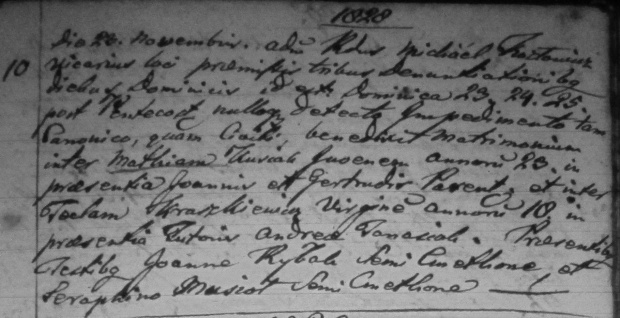 1828
10
Die 26. Novembris. adm Rdus Michaël
vicarius loci præmissis tribus Denuntiationibg
diebus Dominicis id est: Dominica 23. 24. 25.
post Pentecost. nulloq detecto Impedimento tam
Canonico, quam Civili, benedixit Matrimonium
inter Mathiam Kusiak Juvenem annorū 23. in
præsentia Joannis et Gertrudis Parent: et inter
Teclam Skraszkiewicz Virginē annorū 18. in
præsentia Tutoris Andreæ Banasiak. Præsentibg
Testibg Joanne Rybak Semi Cmethone, et
Seraphino Musiort Semi Cmethone